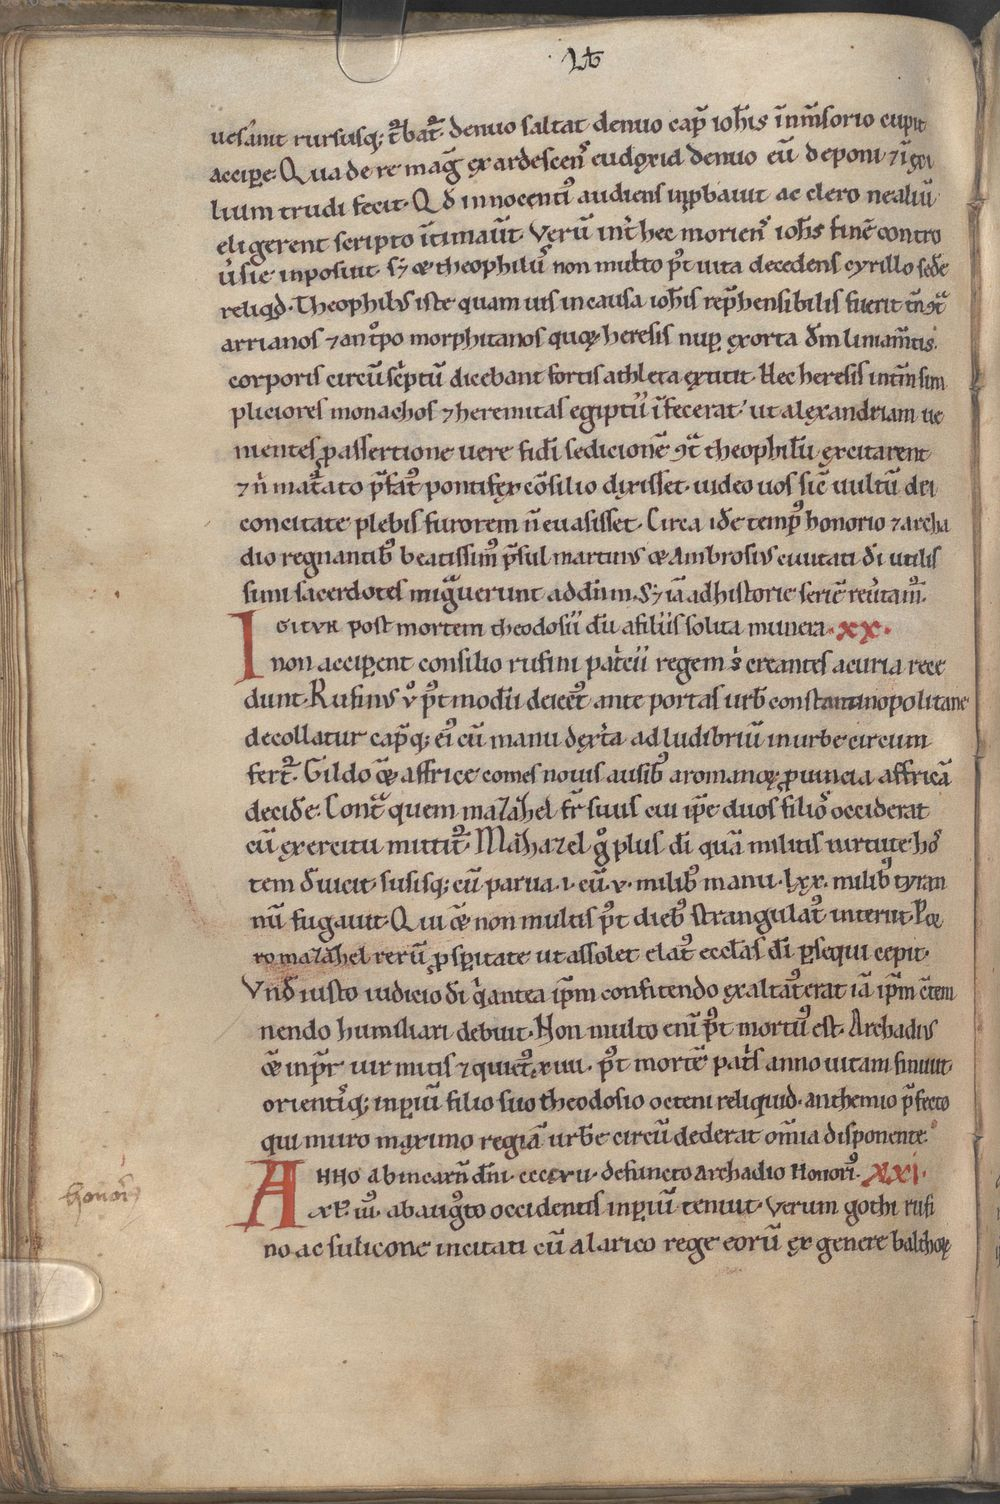 Lib
uesanit rursusq; t̄bat᷑. denuo saltat denuo cap̄ ioħis īnm̄sorio cupit
accip̱e. Qua de re mag̃ ęxardescen᷒ eudoxia denuo eū deponi ⁊ ī exi
lium trudi fecit. Qđ innocenti᷒ audiens inp̱bauit ac clero ne aliū
eligerent scripto ītimau̅t. Verū int̾ hec morien᷒ ioħs finē contro
u̾sie inposuit. S; ⁊ theophilu᷒ non multo p̄t uita decedens cyrillo sedē
reliqđ. Theophilus iste quam uis in causa ioħis rep̄hensibilis fuerit tn̄ ↄt̄
arrianos ⁊ ant͛po morphitanos quoꝗ heresis nup̱ exorta dm̄ liniam̄tis
corporis circūsc̾ptū dicebant fortis athleta extitit. Hec heresis int̄m sim
pliciores monachos ⁊ heremitas egiptii īfecerat. ut alexandriam ue
nientes ꝓ assertione uere fidi sedicionē ↄt̄ theophilū excitarent
⁊ n̄ mat̾ato p̄fat᷒ pontifex cōsilio dixisset. uideo uos sic̄ uultū dei
concitate plebis furorem n̄ euasisset. Circa idē temp᷒ honorio ⁊ archa
dio regnantib᷒ beatissim᷒ p̄sul martinus ⁊ Ambrosius ciuitati di̅ utilis
simi sacerdotes mig̃uerunt ad dn̄m. S; iā ad historie seriē reu̾tam᷒.
IGITVR post mortem theodosii dū a filiis solita munera .XX.
non accip̱ent consilio rufini pat̾cii regem s̾ creantes a curia rece
dunt. Rufinus u͛ p̄t modū deiect᷒ ante portas urb̄ constantinopolitane
decollatur cap̄q; ei᷒ cū manu dext̾a ad ludibriū in urbe circum
fert᷑. Gildo q̄ꝗ affrice comes nouis ausib᷒ a romanoꝝ ꝓuincia affricā
decidē. Cont̄ quem mazahel fr̄ suus cui ip̄e duos filio᷒ occiderat
cū exercitu mittit᷑. Mahazel g͛ plus di̅ quā militis uirtute ho᷒
tem deuicit. susisq; cū parua .i. cū .v. milib᷒ manu .lxx. milib᷒ tyran
nū fugauit. Qui q̄ꝗ non multis p̄t dieb᷒ strangulat᷒ interiit. Por
ro mazahel rerū ꝓsp̱itate ut assolet elat᷒ eccl̄as di̅ p̱sequi cepit.
Vnđ iusto iudicio di̅ q̾ antea ip̄m confitendo exaltat᷒ erat iā ip̄m c̄tem
nendo humiliari debuit. Non multo eni̅ p̄t mortu᷒ est. Archadius
q̄ꝗ inp̄r uir mitis ⁊ quiet᷒ xiiii. p̄t mortē pat̾s anno uitam finiuit.
orienti᷒q; inp̱iū filio suo theodosio octeni reliquid. anthemio p̄fecto
qui muro maximo regiā urbē circū dederat om̄ia disponente.
ANNO ab incarn̄ dn̄i. ccccxii. defuncto archadio Honori᷒ .XXI.
xl᷒. iii᷒. ab augusto occidentis inp̱iū tenuit. Verum gothi rufi
no ac stilicone incitati cū alarico rege eorū ex genere balthoꝝ
honori᷒